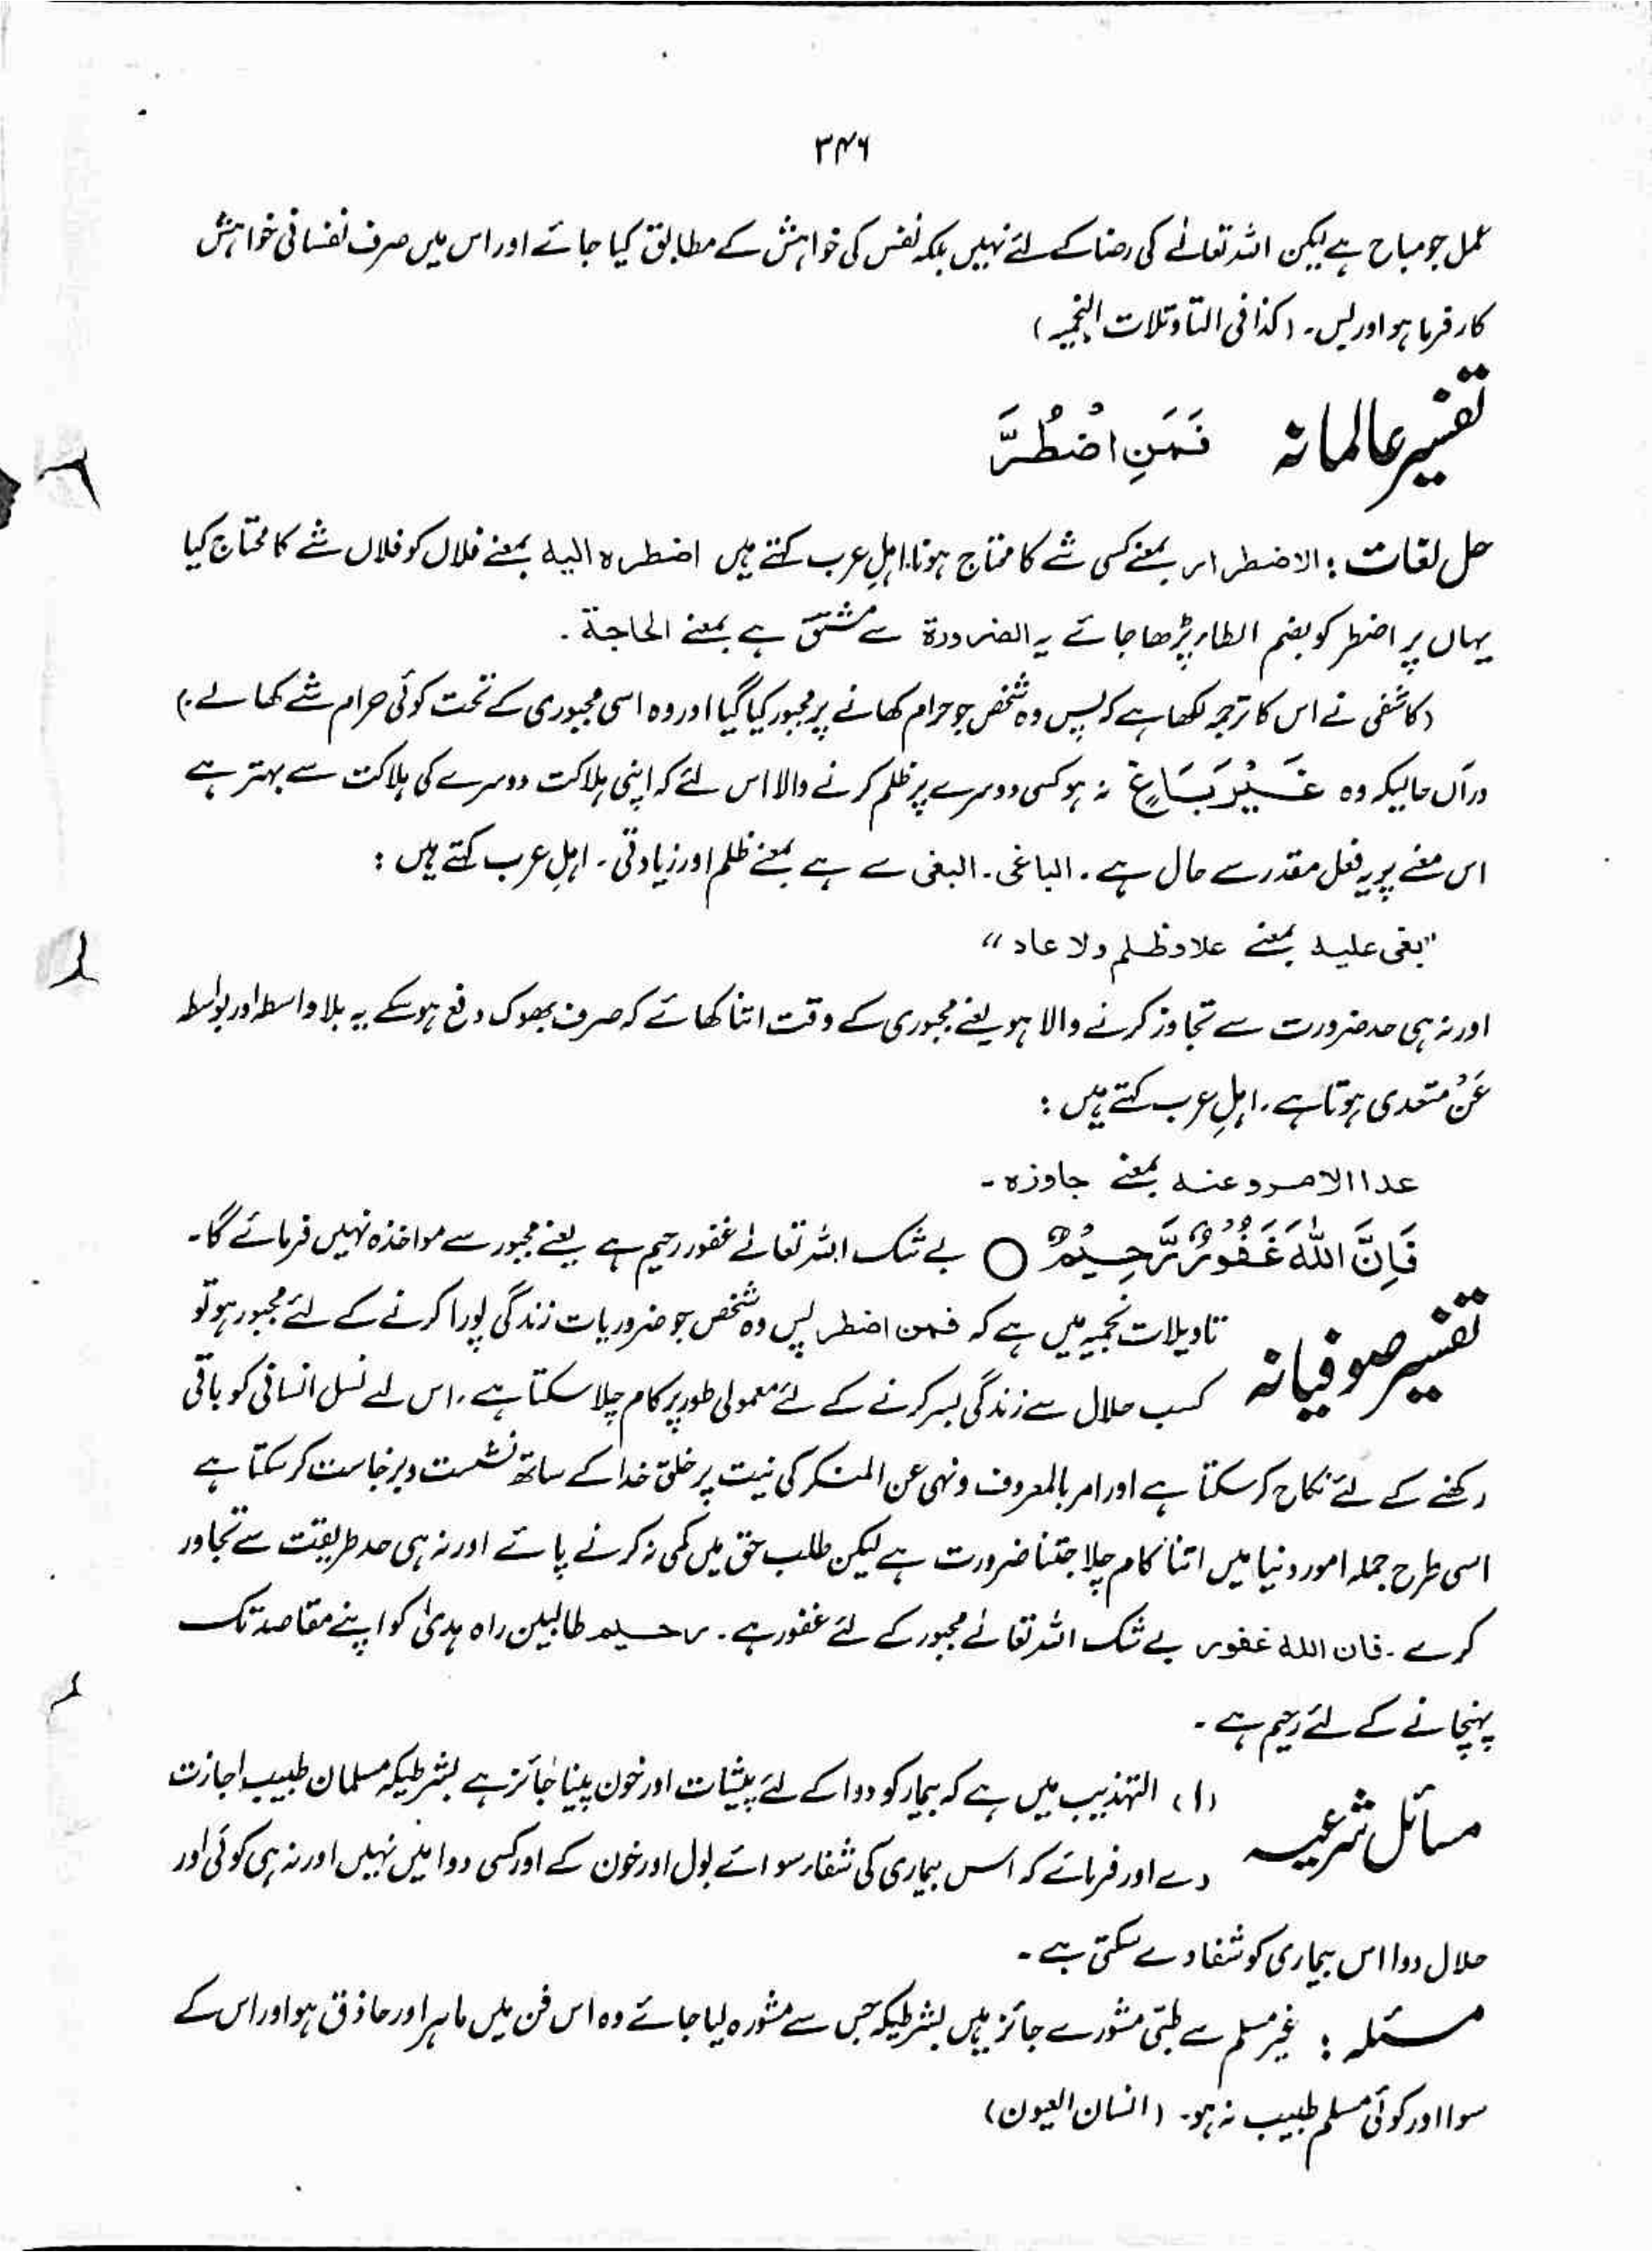 ۳۴۶
عمل جو مباح ہے لیکن اللہ تعالےٰ کی رضا کے لئے نہیں بلکہ نفس کی خواہش کے مطابق کیا جائے اور اس میں صرف نفسانی خواہش
کارفرما ہو اور بس۔ (کذا فی التاویلات النجمیہ)
تفسیر عالمانہ فَمَنِ اضْطُرَّ
حل لغات : الاضطرار بمعنے کسی شے کا محتاج ہونا۔ اہلِ عرب کہتے ہیں اضطرہ الیہ بمعنے فلاں کو فلاں شے کا محتاج کیا
یہاں پر اضطر کو بضم الطاء پڑھا جائے یہ الضرورۃ سے مشتق ہے بمعنے الحاجۃ۔
(کاشفی نے اس کا ترجمہ لکھا ہے کہ پس وہ شخص جو حرام کھانے پر مجبور کیا گیا اور وہ اسی مجبوری کے تحت کوئی حرام شے کھالے۔)
درآں حالیکہ وہ غَيْرَ بَاغٍ نہ ہو کسی دوسرے پر ظلم کرنے والا اس لئے کہ اپنی ہلاکت دوسرے کی ہلاکت سے بہتر ہے
اس معنے پر یہ فعل مقدر سے حال ہے۔ الباغی۔ البغی سے ہے بمعنے ظلم اور زیادتی۔ اہلِ عرب کہتے ہیں :
”بغی علیہ بمعنے علا وظلم ولا عاد“
اور نہ ہی حد ضرورت سے تجاوز کرنے والا ہو یعنے مجبوری کے وقت اتنا کھائے کہ صرف بھوک دفع ہو سکے یہ بلا واسطہ اور بواسطہ
عَنْ متعدی ہوتا ہے۔ اہلِ عرب کہتے ہیں :
عدا الامر وعنہ بمعنے جاوزہ۔
فَاِنَّ اللّٰهَ غَفُوْرٌ رَّحِيْمٌ ○ بے شک اللہ تعالےٰ غفور رحیم ہے یعنے مجبور سے مواخذہ نہیں فرمائے گا۔
تفسیر صوفیانہ تاویلات نجمیہ میں ہے کہ فمن اضطر پس وہ شخص جو ضروریات زندگی پورا کرنے کے لئے مجبور ہو تو
کسب حلال سے زندگی بسر کرنے کے لئے معمولی طور پر کام چلا سکتا ہے، اس لے نسل انسانی کو باقی
رکھنے کے لئے نکاح کر سکتا ہے اور امر بالمعروف ونہی عن المنکر کی نیت پر خلق خدا کے ساتھ نشست وبرخاست کر سکتا ہے
اسی طرح جملہ امور دنیا میں اتنا کام چلا جتنا ضرورت ہے لیکن طلب حق میں کمی نہ کرنے پائے اور نہ ہی حد طریقت سے تجاوز
کرے۔ فان اللہ غفور بے شک اللہ تعالےٰ مجبور کے لئے غفور ہے۔ رحیم طالبین راہ ہدیٰ کو اپنے مقاصد تک
پہنچانے کے لئے رحیم ہے۔
مسائل شرعیہ (۱) التہذیب میں ہے کہ بیمار کو دوا کے لئے پیشات اور خون پینا جائز ہے بشرطیکہ مسلمان طبیب اجازت
دے اور فرمائے کہ اس بیماری کی شفاء سوائے بول اور خون کے اور کسی دوا میں نہیں اور نہ ہی کوئی اور
حلال دوا اس بیماری کو شفا دے سکتی ہے۔
مسئلہ : غیر مسلم سے طبّی مشورے جائز ہیں بشرطیکہ جس سے مشورہ لیا جائے وہ اس فن میں ماہر اور حاذق ہو اور اس کے
سوا اور کوئی مسلم طبیب نہ ہو۔ (انسان العیون)